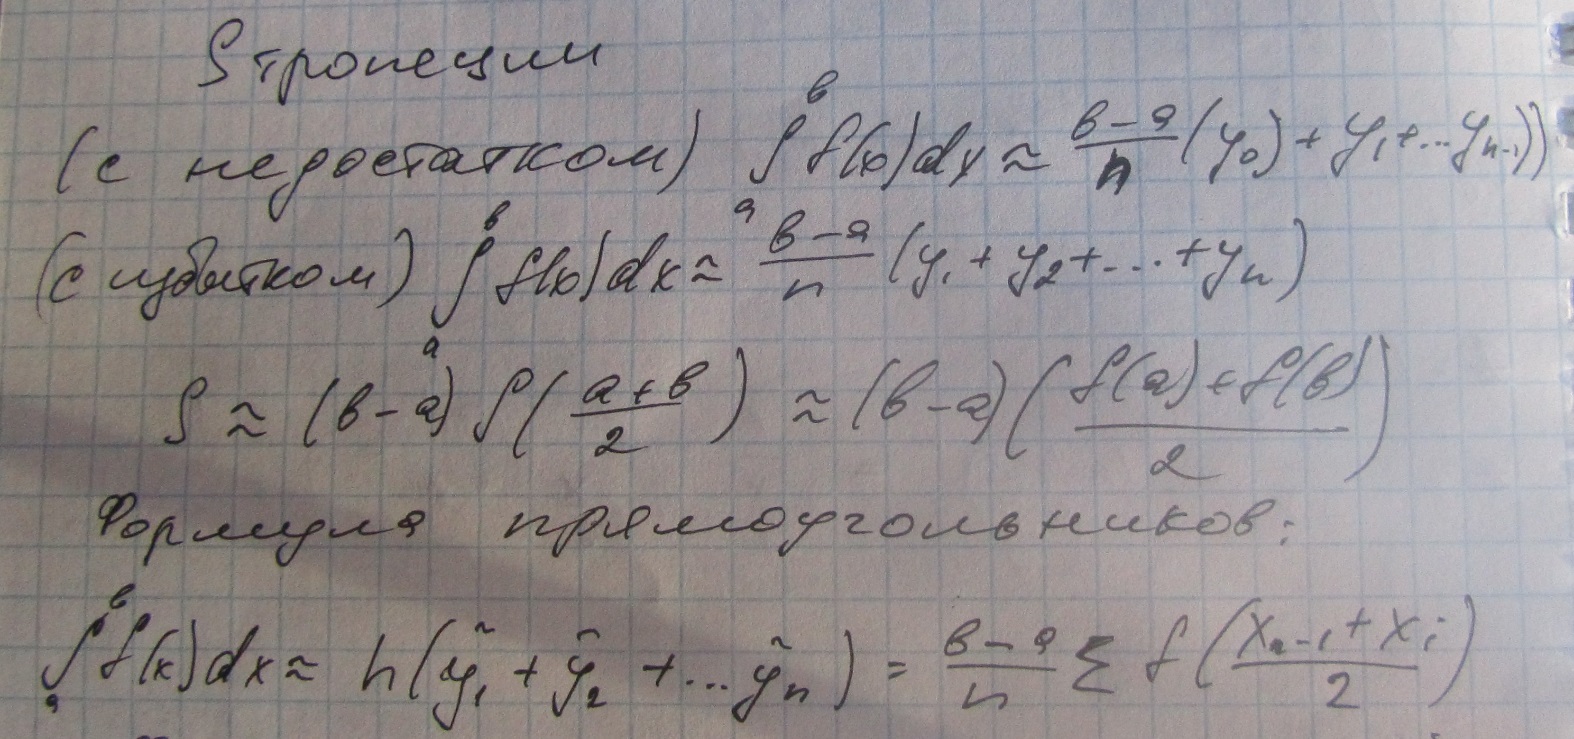 S тропеции
(с недостатком) ∫ₐᵇ f(x)dx ≈ (в-а)/n (y₀) + y₁ + ... yₙ₋₁))
(с избытком) ∫ₐᵇ f(x)dx ≈ (в-а)/n (y₁ + y₂ + ... + yₙ)
S ≈ (в-а) f((a+в)/2) ≈ (в-а)((f(a)+f(в))/2)
Формула прямоугольников:
∫ₐᵇ f(x)dx ≈ h(ỹ₁ + ỹ₂ + ... ỹₙ) = (в-а)/n Σ f((xₙ₋₁ + xᵢ)/2)